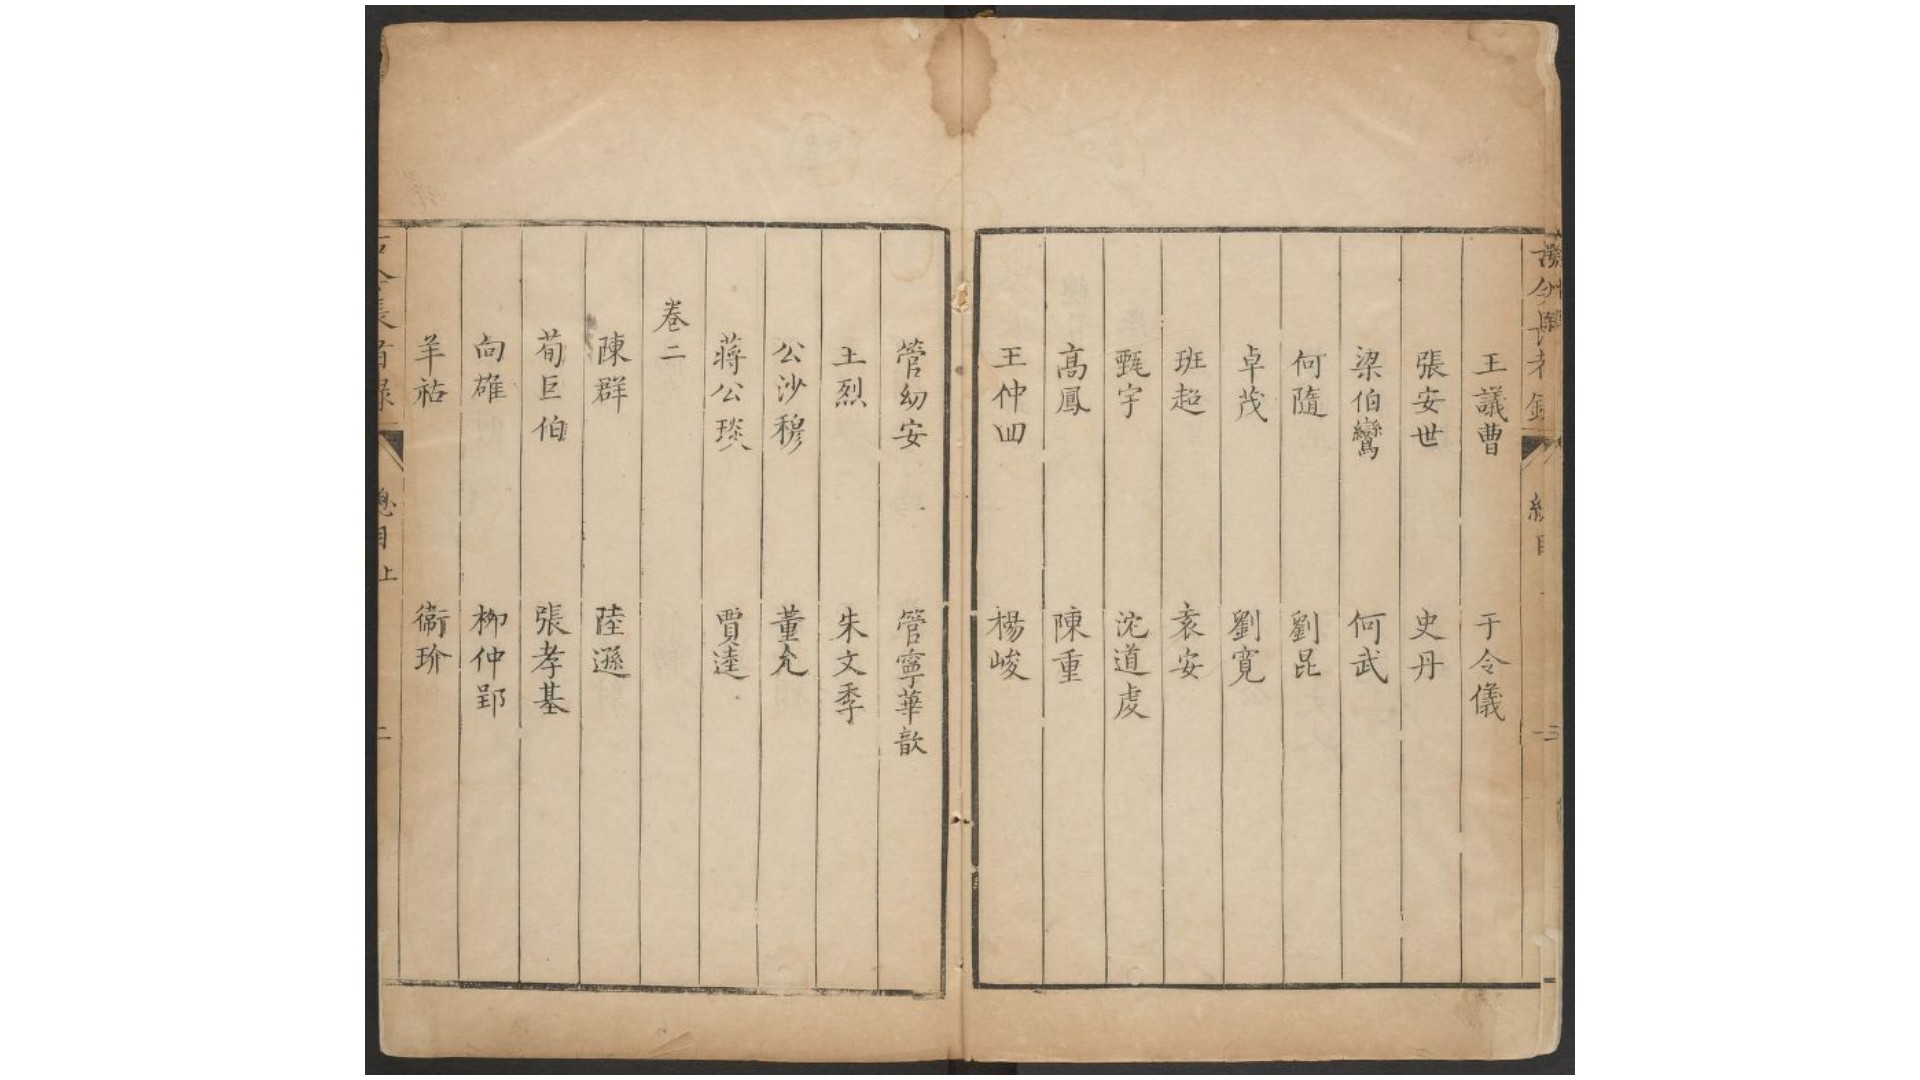 王議曹 于令儀
張安世 史丹
梁伯鸞 何武
何隨 劉昆
卓茂 劉寬
班超 袁安
甄宇 沈道虔
高鳳 陳重
王仲回 楊峻
管幼安 管寧華歆
王烈 朱文季
公沙穆 董允
蔣公琰 賈逵
卷二
陳群 陸遜
荀巨伯 張孝基
向雄 柳仲郢
羊祜 衞玠
總目上
二